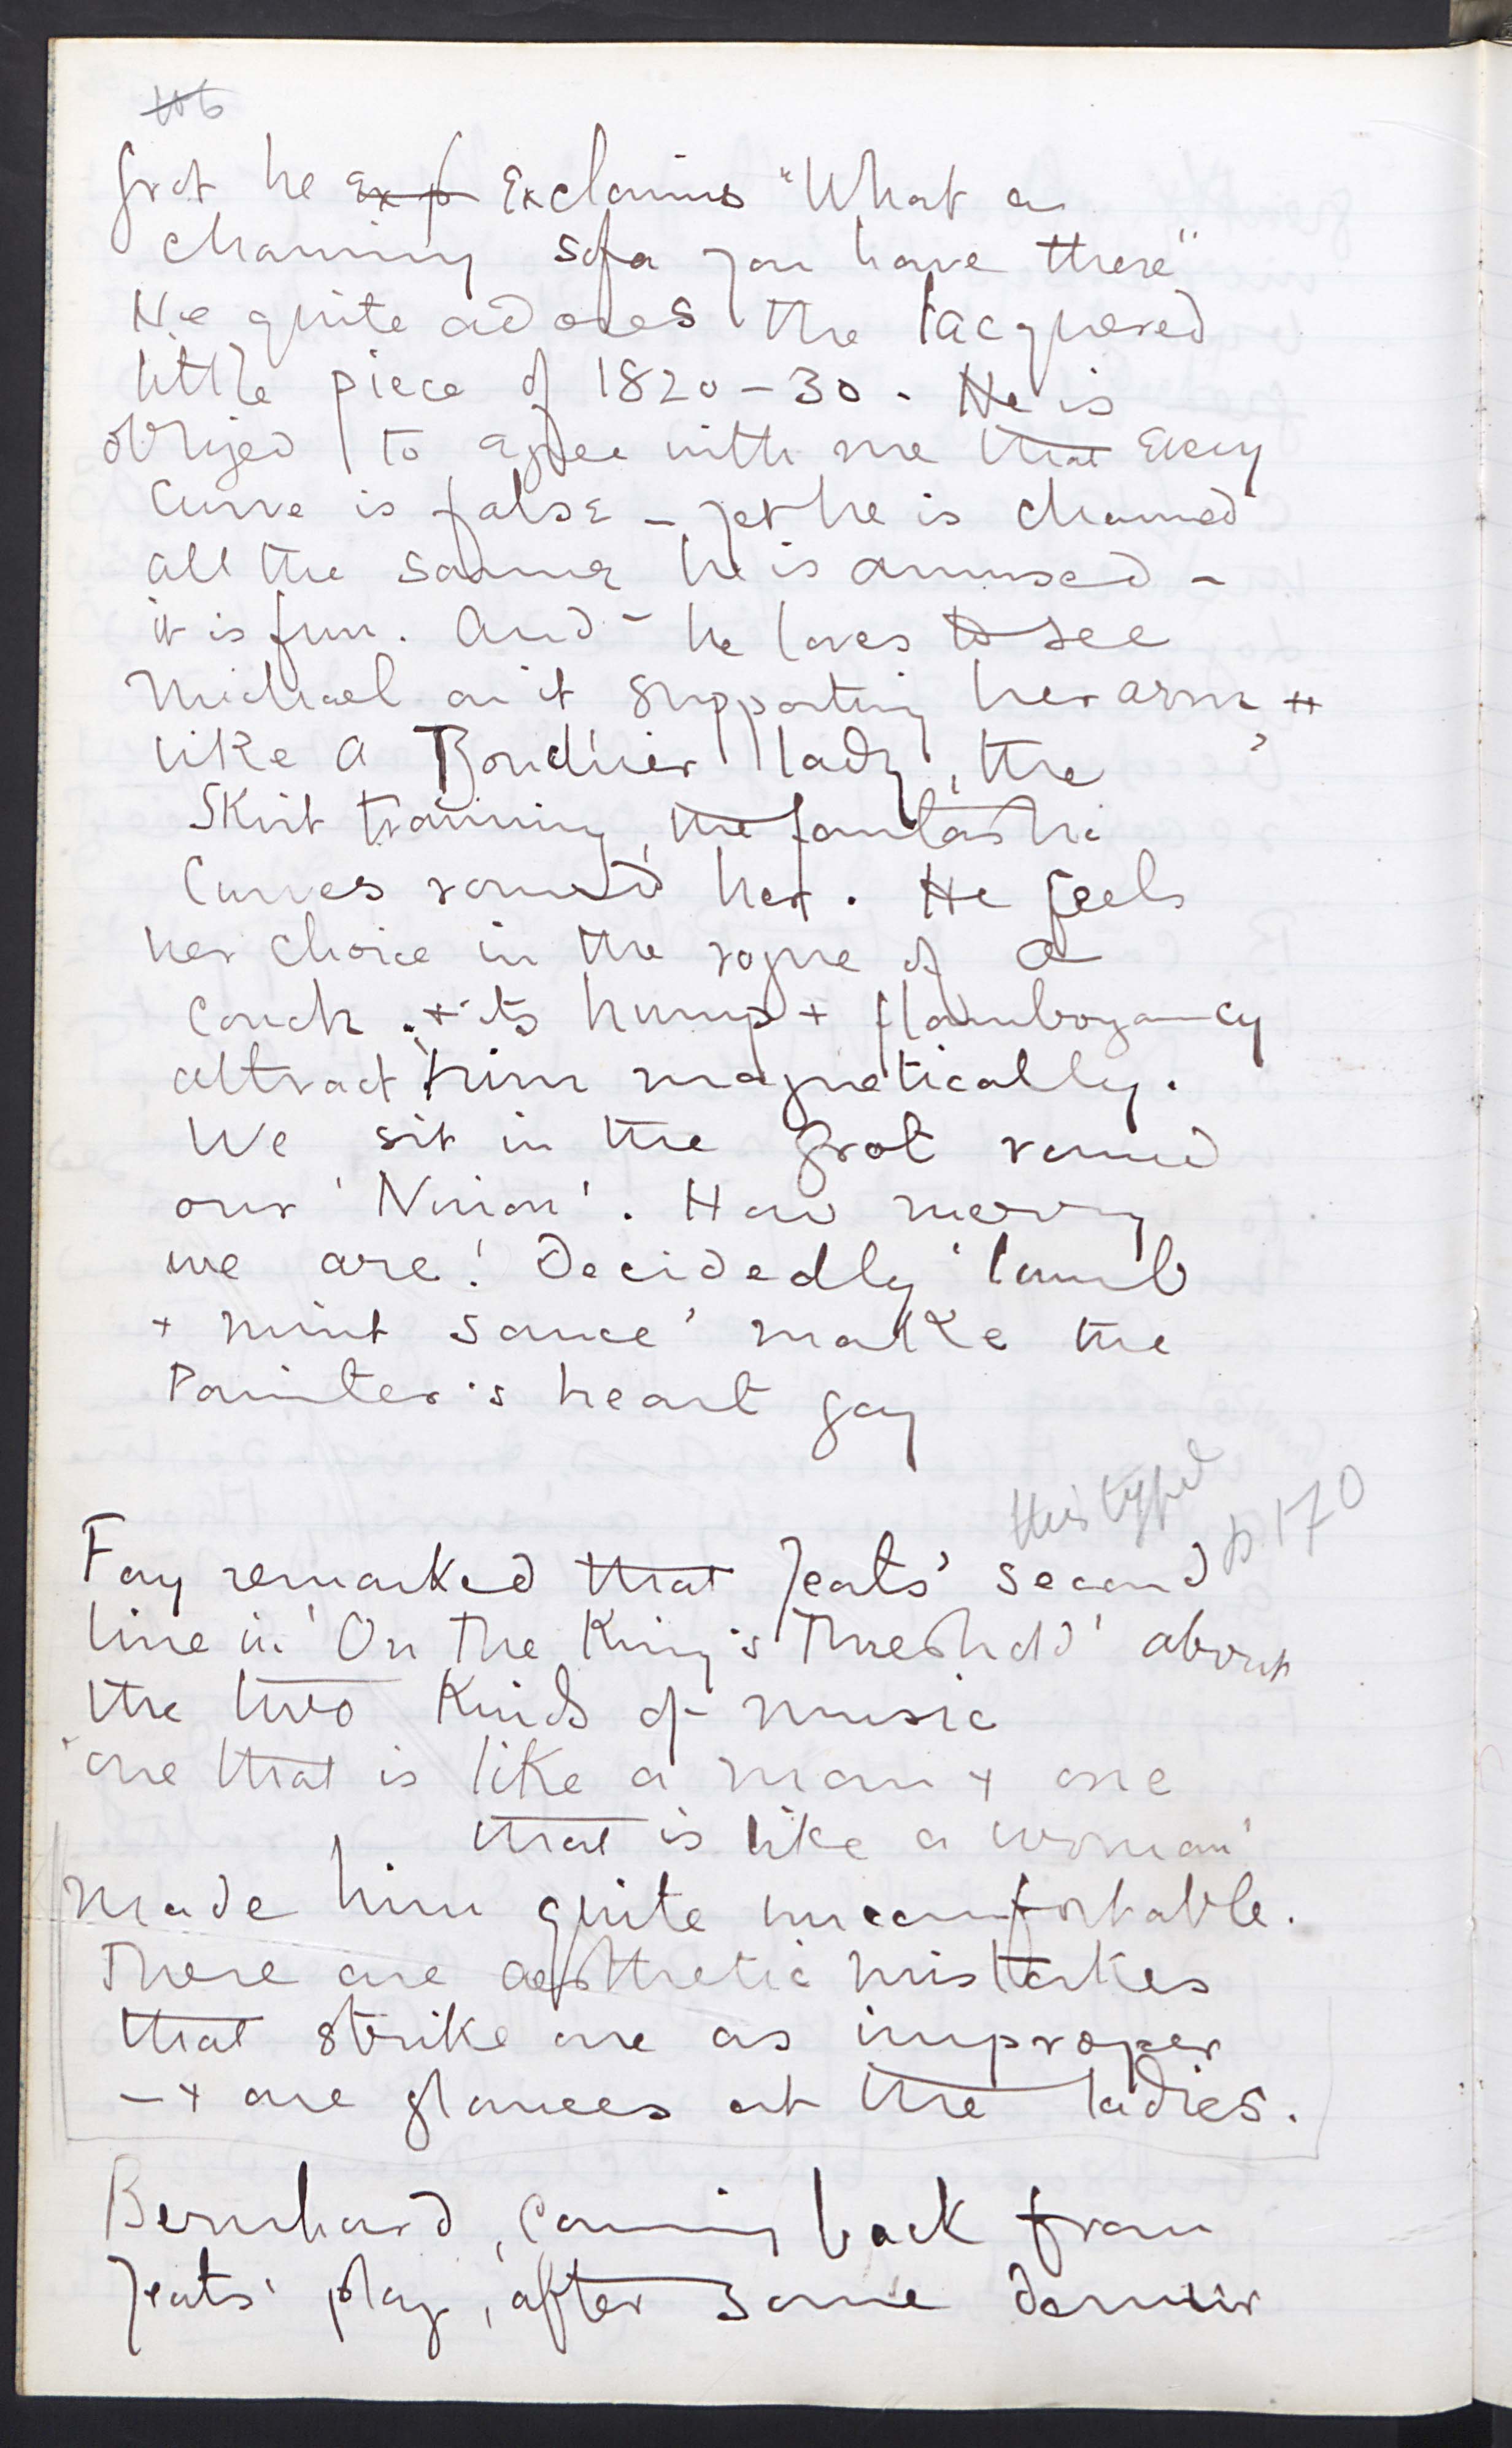 106
Grot he exp Exclaims "What a
charming sofa you have there"
He quite adores the lacquered
little piece of 1820-30. He is
obliged to agree with me that every
curve is false – yet he is charmed
all the same he is amused –
it is fun. And – he loves to see
Michael on it supporting her arm
like a Boucher lady, the
skirt training, the fantastic
curves round her. He feels
her choice in the rogue of a
couch. + its hump + flamboyancy
attract him magnetically.
We sit in the grot round
our 'Ninon'. How merry
we are! Decidedly 'lamb
+ mint sauce' make the
Painter's heart gay
this typed
p 170
Fay remarked that Yeats' second
line in 'On The King's Threshold' about
the two kinds of music
'one that is like a man + one
that is like a woman'
made him quite uncomfortable.
There are aesthetic mistakes
that strike one as improper
– + one glances at the ladies.
Bernhard, coming back from
Yeats' play, after some demur